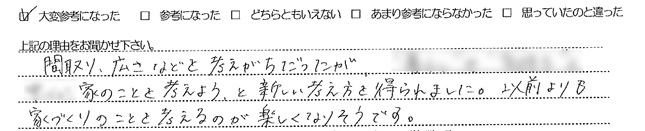 ☑ 大変参考になった □ 参考になった □ どちらともいえない □ あまり参考にならなかった □ 思っていたのと違った
上記の理由をお聞かせ下さい。
間取り、広さなどと考えがちだったが、
家のことを考えよう、と新しい考え方を得られました。以前より
家づくりのことを考えるのが楽しくなりそうです。